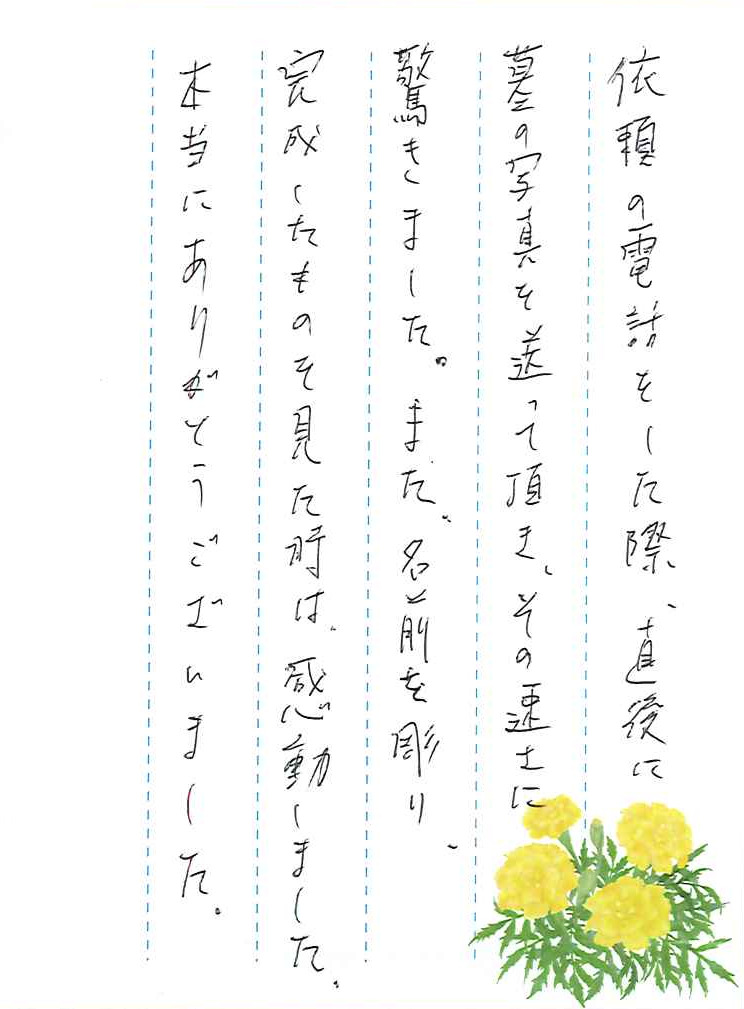 依頼の電話をした際、直後に
墓の写真を送って頂き、その速さに
驚きました。また、名前を彫り、
完成したものを見た時は、感動しました。
本当にありがとうございました。